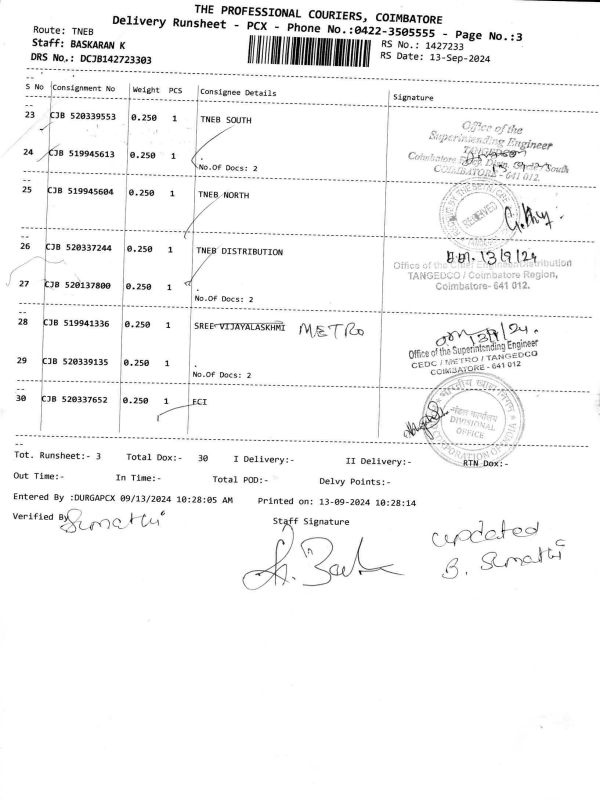 THE PROFESSIONAL COURIERS, COIMBATORE
Delivery Runsheet - PCX - Phone No.:0422-3505555 - Page No.:3
Route: TNEB
Staff: BASKARAN K
DRS No.: DCJB142723303
RS No.: 1427233
RS Date: 13-Sep-2024
S No Consignment No Weight PCS Consignee Details Signature
23 CJB 520339553 0.250 1 TNEB SOUTH
Office of the
Superintending Engineer
24 CJB 519945613 0.250 1 .
No.Of Docs: 2
COIMBATORE - 641 012.
25 CJB 519945604 0.250 1 TNEB NORTH
RECEIVED
26 CJB 520337244 0.250 1 TNEB DISTRIBUTION
13/9/24
Office of the Chief Engineer/Distribution
TANGEDCO / Coimbatore Region,
Coimbatore- 641 012.
27 CJB 520137800 0.250 1 .
No.Of Docs: 2
28 CJB 519941336 0.250 1 SREE VIJAYALASKHMI METRO
13/9/24.
Office of the Superintending Engineer
CEDC / METRO / TANGEDCO
COIMBATORE - 641 012
29 CJB 520339135 0.250 1 .
No.Of Docs: 2
30 CJB 520337652 0.250 1 FCI
भारतीय खाद्य निगम
मंडल कार्यालय
DIVISIONAL
OFFICE
CORPORATION OF INDIA
Tot. Runsheet:- 3 Total Dox:- 30 I Delivery:- II Delivery:- RTN Dox:-
Out Time:- In Time:- Total POD:- Delvy Points:-
Entered By :DURGAPCX 09/13/2024 10:28:05 AM Printed on: 13-09-2024 10:28:14
Verified By Sumathi
Staff Signature
updated
B. Sumathi